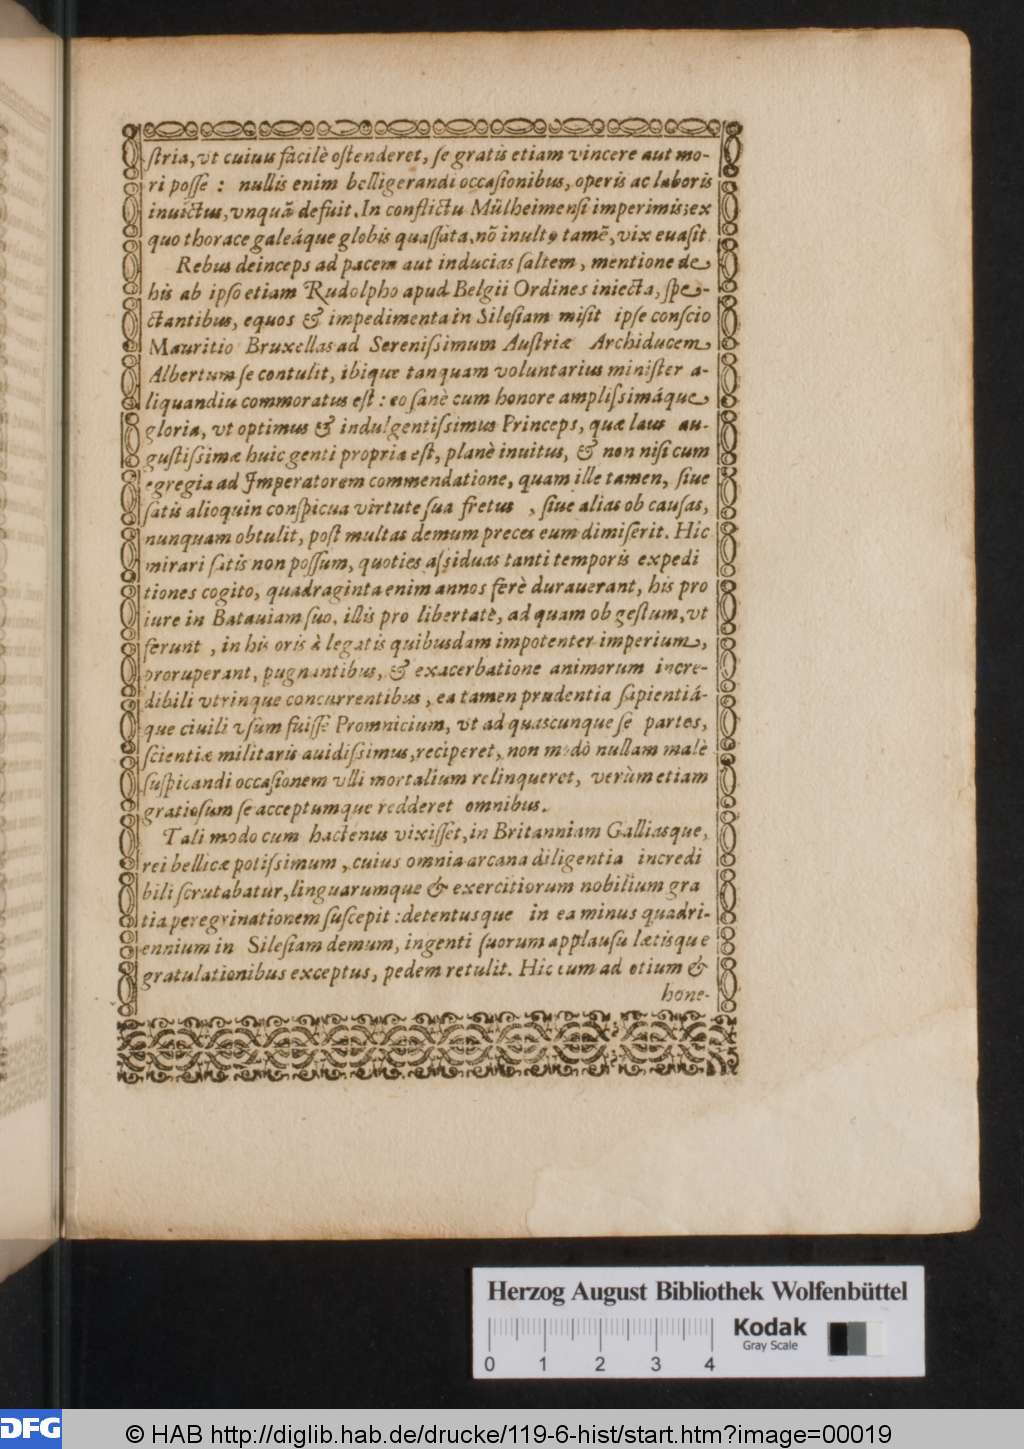 ſtria, vt cuiuis facilè oſtenderet, ſe gratis etiam vincere aut mo-
ri poſſe : nullis enim belligerandi occaſionibus, operis ac laboris
inuictus, vnquã defuit. In conflictu Mülheimenſi imperimis; ex
quo thorace galeáque globis quaſſata, nõ inultꝰ tamẽ, vix euaſit.
Rebus deinceps ad pacem aut inducias ſaltem, mentione de
his ab ipſo etiam Rudolpho apud Belgii Ordines iniecta, ſpe-
ctantibus, equos & impedimenta in Sileſiam miſit ipſe conſcio
Mauritio Bruxellas ad Sereniſsimum Auſtriæ Archiducem
Albertum ſe contulit, ibique tanquam voluntarius miniſter a-
liquandiu commoratus eſt : eo ſanè cum honore ampliſsimáque
gloria, vt optimus & indulgentiſsimus Princeps, quæ laus au-
guſtiſsimæ huic genti propria eſt, planè inuitus, & non niſi cum
egregia ad Imperatorem commendatione, quam ille tamen, ſiue
ſatis alioquin conſpicua virtute ſua fretus , ſiue alias ob cauſas,
nunquam obtulit, poſt multas demum preces eum dimiſerit. Hic
mirari ſatis non poſſum, quoties aſsiduas tanti temporis expedi
tiones cogito, quadraginta enim annos ferè durauerant, his pro
iure in Batauiam ſuo, illis pro libertatè, ad quam ob geſtum, vt
ferunt , in his oris à legatis quibusdam impotenter imperium,
proruperant, pugnantibus, & exacerbatione animorum incre-
dibili vtrinque concurrentibus, ea tamen prudentia ſapientiá-
que ciuili vſum fuiſſe Promnicium, vt ad quascunque ſe partes,
ſcientiæ militaris auidiſsimus, reciperet, non modò nullam malè
ſuſpicandi occaſionem vlli mortalium relinqueret, verùm etiam
gratioſum ſe acceptumque redderet omnibus.
Tali modo cum hactenus vixiſſet, in Britanniam Galliasque,
rei bellicæ potiſsimum, cuius omnia arcana diligentia incredi
bili ſcrutabatur, linguarumque & exercitiorum nobilium gra
tia peregrinationem ſuſcepit : detentusque in ea minus quadri-
ennium in Sileſiam demum, ingenti ſuorum applauſu lætisque
gratulationibus exceptus, pedem retulit. Hic cum ad otium &
hone-
Herzog August Bibliothek Wolfenbüttel
0 1 2 3 4
Kodak
Gray Scale
DFG
© HAB http://diglib.hab.de/drucke/119-6-hist/start.htm?image=00019